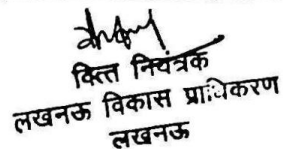 वित्त नियंत्रक
लखनऊ विकास प्राधिकरण
लखनऊ